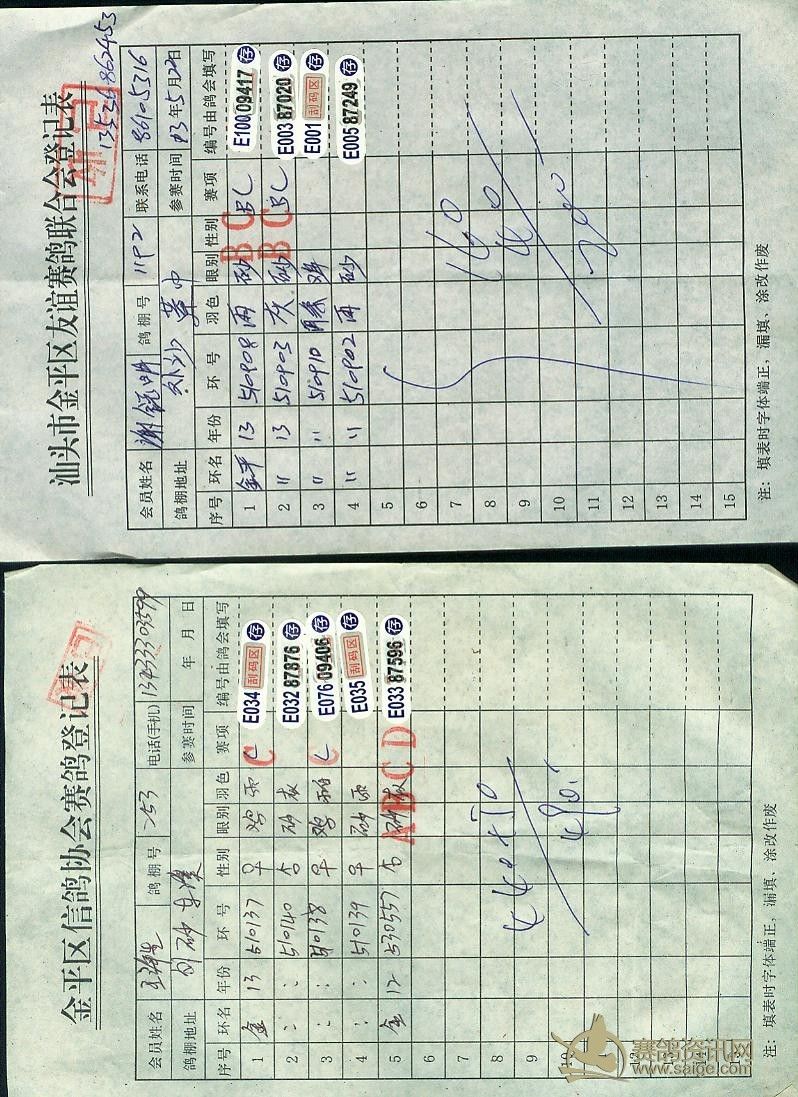 汕头市金平区友谊赛鸽联合会登记表
13536862453
会员姓名 谢 明 鸽棚号 1192 联系电话 86105316
鸽棚地址 外沙 参赛时间 13年5月22日
序号 环名 年份 环号 羽色 眼别 性别 赛项 编号由鸽会填写
1 金平 13 510908 雨 砂 BC BL E100 09417 存
2 〃 13 510903 灰 砂 BC BL E003 87020 存
3 〃 〃 510910 鸡 E001 刮码区 存
4 〃 〃 510902 雨 砂 E005 87249 存
5
6
7
8
9
10
11
12
13
14
15
注：填表时字体端正，漏填、涂改作废
金平区信鸽协会赛鸽登记表
会员姓名 鸽棚号 电话(手机) 13433303599
鸽棚地址 参赛时间 年 月 日
序号 环名 年份 环号 性别 眼别 羽色 赛项 编号由鸽会填写
1 金 13 510137 ♀ 鸡 雨 C E034 刮码区 存
2 : : 510140 砂 灰 E032 87876 存
3 : : 510138 ♀ 鸡 C E076 09406 存
4 : : 510139 ♀ 砂 雨 E035 刮码区 存
5 金 12 530557 砂 灰 ABCD E033 87596 存
6
7
8
9
10
11
12
13
14
15
注：填表时字体端正，漏填、涂改作废
赛鸽资讯网
www.saige.com